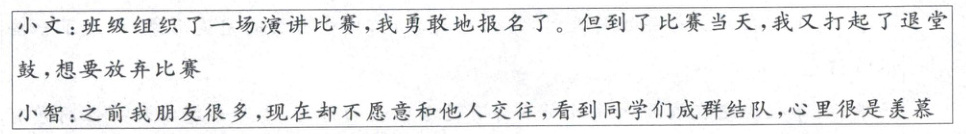 小文:班级组织了一场演讲比赛,我勇敢地报名了。但到了比赛当天,我又打起了退堂
鼓,想要放弃比赛
小智:之前我朋友很多,现在却不愿意和他人交往,看到同学们成群结队,心里很是羡慕